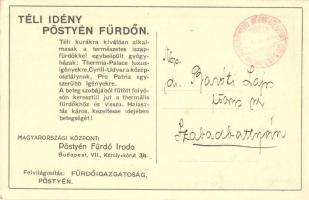 TÉLI IDÉNY
PÖSTYÉN FÜRDŐN.
Téli kurákra kiválóan alkal-
masak a természetes iszap-
fürdőkkel egybeépült gyógy-
házak: Thermia-Palace luxus-
igényekre, Cyrill-Udvar a közép-
osztálynak, Pro Patria egy-
szerűbb igényekre.
A beteg szobájából fűtött folyo-
són keresztül jut a thermális
fürdőkhöz és vissza. Halasz-
tás káros, kezeltesse idejében
betegségét!
MAGYARORSZÁGI KÖZPONT:
Pöstyén Fürdő Iroda
Budapest, VII., Károly-körút 3/a.
Felvilágosítás: FÜRDŐIGAZGATOSÁG,
PÖSTYÉN.
Baróti Lajos
Szabadbattyán